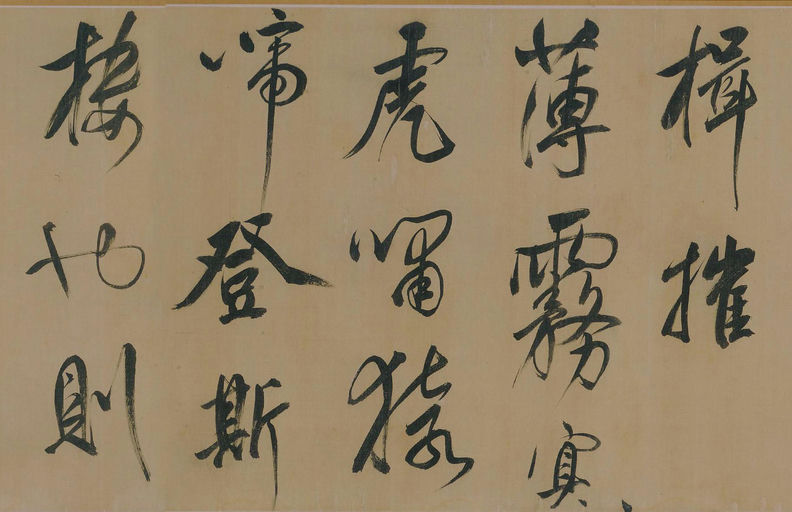 楫摧
薄霧冥
虎嘯猿
啼登斯
樓也則